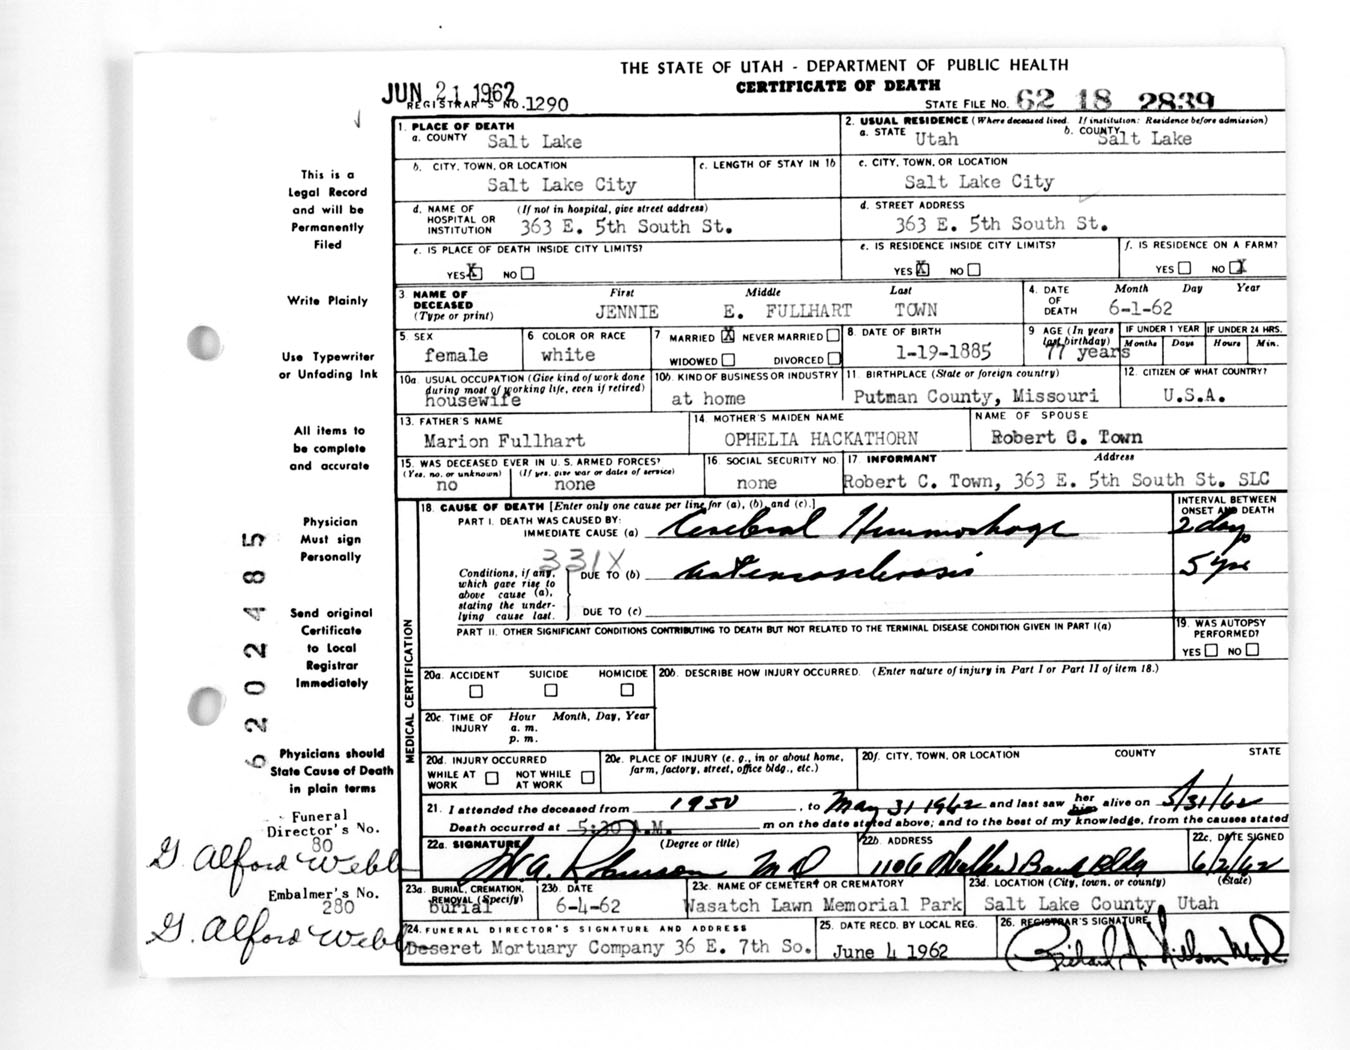 THE STATE OF UTAH - DEPARTMENT OF PUBLIC HEALTH
CERTIFICATE OF DEATH
JUN 21 1962
REGISTRAR'S NO. 1290
STATE FILE NO. 62 18 2839
1. PLACE OF DEATH
a. COUNTY Salt Lake
2. USUAL RESIDENCE (Where deceased lived. If institution: Residence before admission)
a. STATE Utah b. COUNTY Salt Lake
b. CITY, TOWN, OR LOCATION Salt Lake City
c. LENGTH OF STAY IN 1b
c. CITY, TOWN, OR LOCATION Salt Lake City
d. NAME OF HOSPITAL OR INSTITUTION (If not in hospital, give street address) 363 E. 5th South St.
d. STREET ADDRESS 363 E. 5th South St.
e. IS PLACE OF DEATH INSIDE CITY LIMITS?
YES X NO
e. IS RESIDENCE INSIDE CITY LIMITS?
YES X NO
f. IS RESIDENCE ON A FARM?
YES NO X
3. NAME OF DECEASED (Type or print)
First Middle Last
JENNIE E. FULLHART TOWN
4. DATE OF DEATH Month Day Year
6-1-62
5. SEX female
6 COLOR OR RACE white
7 MARRIED X NEVER MARRIED
WIDOWED DIVORCED
8. DATE OF BIRTH 1-19-1885
9 AGE (In years last birthday) 77 years
IF UNDER 1 YEAR Months Days
IF UNDER 24 HRS. Hours Min.
10a. USUAL OCCUPATION (Give kind of work done during most of working life, even if retired)
housewife
10b. KIND OF BUSINESS OR INDUSTRY
at home
11. BIRTHPLACE (State or foreign country)
Putman County, Missouri
12. CITIZEN OF WHAT COUNTRY?
U.S.A.
13. FATHER'S NAME
Marion Fullhart
14. MOTHER'S MAIDEN NAME
OPHELIA HACKATHORN
NAME OF SPOUSE
Robert C. Town
15. WAS DECEASED EVER IN U. S. ARMED FORCES?
(Yes, no, or unknown) (If yes, give war or dates of service)
no none
16 SOCIAL SECURITY NO.
none
17. INFORMANT Address
Robert C. Town, 363 E. 5th South St. SLC
18. CAUSE OF DEATH [Enter only one cause per line for (a), (b), and (c).]
INTERVAL BETWEEN ONSET AND DEATH
PART I. DEATH WAS CAUSED BY:
IMMEDIATE CAUSE (a) Cerebral Hemmorhage 2 days
331X
Conditions, if any, which gave rise to above cause (a), stating the underlying cause last.
DUE TO (b) arteriosclerosis 5 yrs
DUE TO (c)
PART II. OTHER SIGNIFICANT CONDITIONS CONTRIBUTING TO DEATH BUT NOT RELATED TO THE TERMINAL DISEASE CONDITION GIVEN IN PART I(a)
19. WAS AUTOPSY PERFORMED?
YES NO
MEDICAL CERTIFICATION
20a. ACCIDENT SUICIDE HOMICIDE
20b. DESCRIBE HOW INJURY OCCURRED. (Enter nature of injury in Part I or Part II of item 18.)
20c. TIME OF INJURY Hour Month, Day, Year
a. m.
p. m.
20d. INJURY OCCURRED
WHILE AT WORK NOT WHILE AT WORK
20e. PLACE OF INJURY (e. g., in or about home, farm, factory, street, office bldg., etc.)
20f. CITY, TOWN, OR LOCATION COUNTY STATE
21. I attended the deceased from 1950, to May 31 1962 and last saw her him alive on 5/31/62
Death occurred at 5:30 A.M. m on the date stated above; and to the best of my knowledge, from the causes stated
22a. SIGNATURE (Degree or title) M D
22b. ADDRESS 1106 Walker Bank Bldg
22c. DATE SIGNED 6/2/62
23a. BURIAL, CREMATION, REMOVAL (Specify)
Burial
23b. DATE
6-4-62
23c. NAME OF CEMETERY OR CREMATORY
Wasatch Lawn Memorial Park
23d. LOCATION (City, town, or county) (State)
Salt Lake County, Utah
24. FUNERAL DIRECTOR'S SIGNATURE AND ADDRESS
Deseret Mortuary Company 36 E. 7th So.
25. DATE RECD. BY LOCAL REG.
June 4 1962
26. REGISTRAR'S SIGNATURE
This is a
Legal Record
and will be
Permanently
Filed
Write Plainly
Use Typewriter
or Unfading Ink
All items to
be complete
and accurate
Physician
Must sign
Personally
Send original
Certificate
to Local
Registrar
Immediately
Physicians should
State Cause of Death
in plain terms
Funeral
Director's No.
80
G. Alford Webb
Embalmer's No.
280
G. Alford Webb
6202485